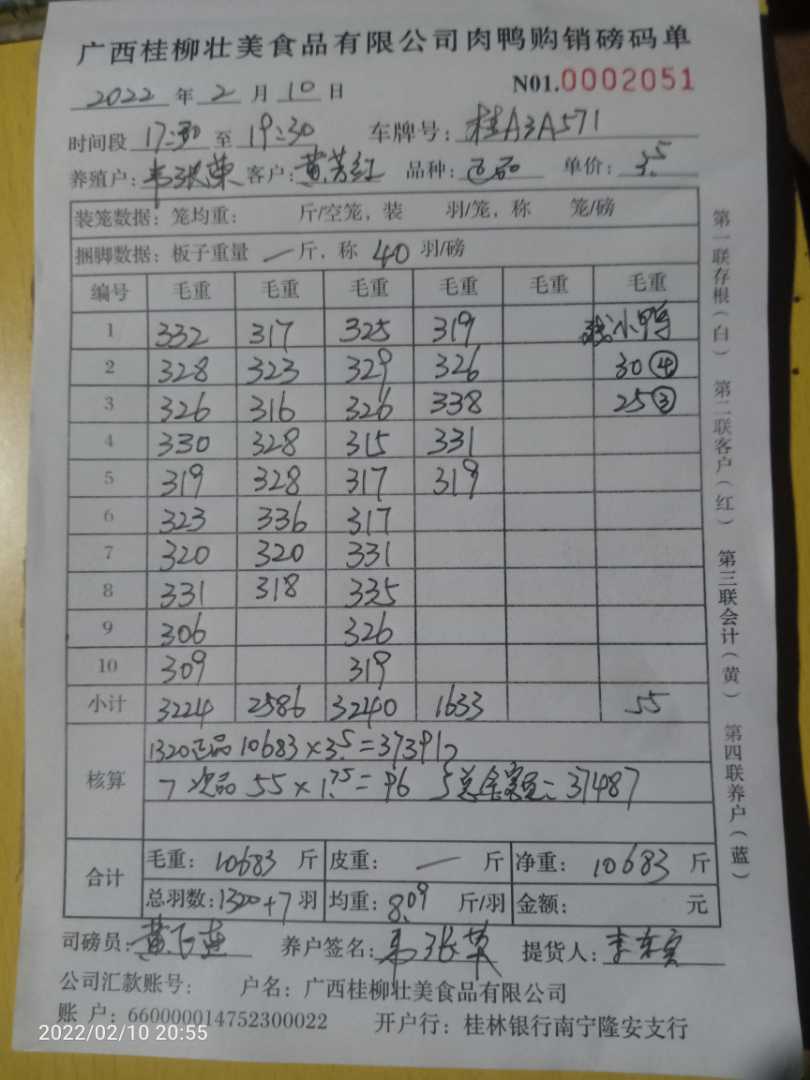 广西桂柳壮美食品有限公司肉鸭购销磅码单
2022 年 2 月 10 日 N01.0002051
时间段 17:30 至 19:30 车牌号: 桂A3A571
养殖户: 韦张荣 客户: 黄芳红 品种: 正品 单价: 3.5
装笼数据: 笼均重: 斤/空笼, 装 羽/笼, 称 笼/磅
捆脚数据: 板子重量 一 斤, 称 40 羽/磅
编号 毛重 毛重 毛重 毛重 毛重 毛重
1 332 317 325 319 小鸭
2 328 323 329 326 30④
3 326 316 326 338 25③
4 330 328 315 331
5 319 328 317 319
6 323 336 317
7 320 320 331
8 331 318 335
9 306 326
10 309 319
小计 3224 2586 3240 1633 55
核算
1320正品 10683×3.5=37391
7 次品 55×1.75=96 总金额: 37487
合计
毛重: 10683 斤 皮重: 一 斤 净重: 10683 斤
总羽数: 1320+7 羽 均重: 8.09 斤/羽 金额: 元
司磅员: 养户签名: 韦张荣 提货人:
公司汇款账号: 户名: 广西桂柳壮美食品有限公司
账 户: 660000014752300022 开户行: 桂林银行南宁隆安支行
第一联存根(白) 第二联客户(红) 第三联会计(黄) 第四联养户(蓝)
2022/02/10 20:55